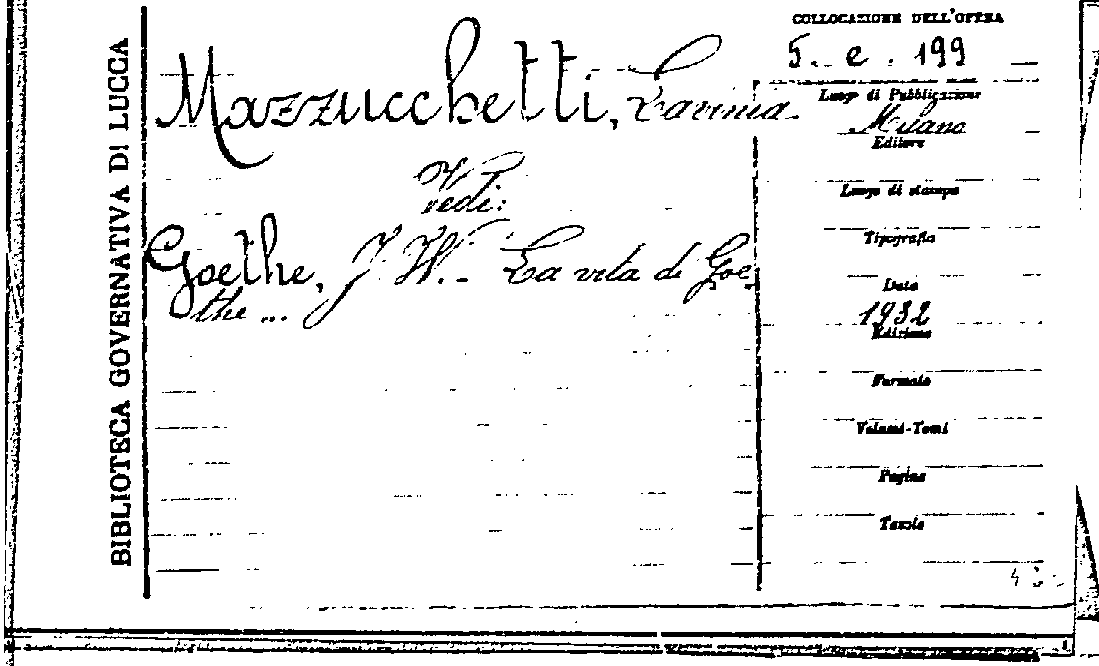 BIBLIOTECA GOVERNATIVA DI LUCCA
Mazzucchetti, Lavinia
Vedi:
Goethe, J. W. - La vita di Goe
the ...
COLLOCAZIONE DELL'OPERA
5. e. 199
Luogo di Pubblicazione
Milano
Editore
Luogo di stampa
Tipografia
Data
1932
Edizione
Formato
Volumi-Tomi
Pagine
Tavole